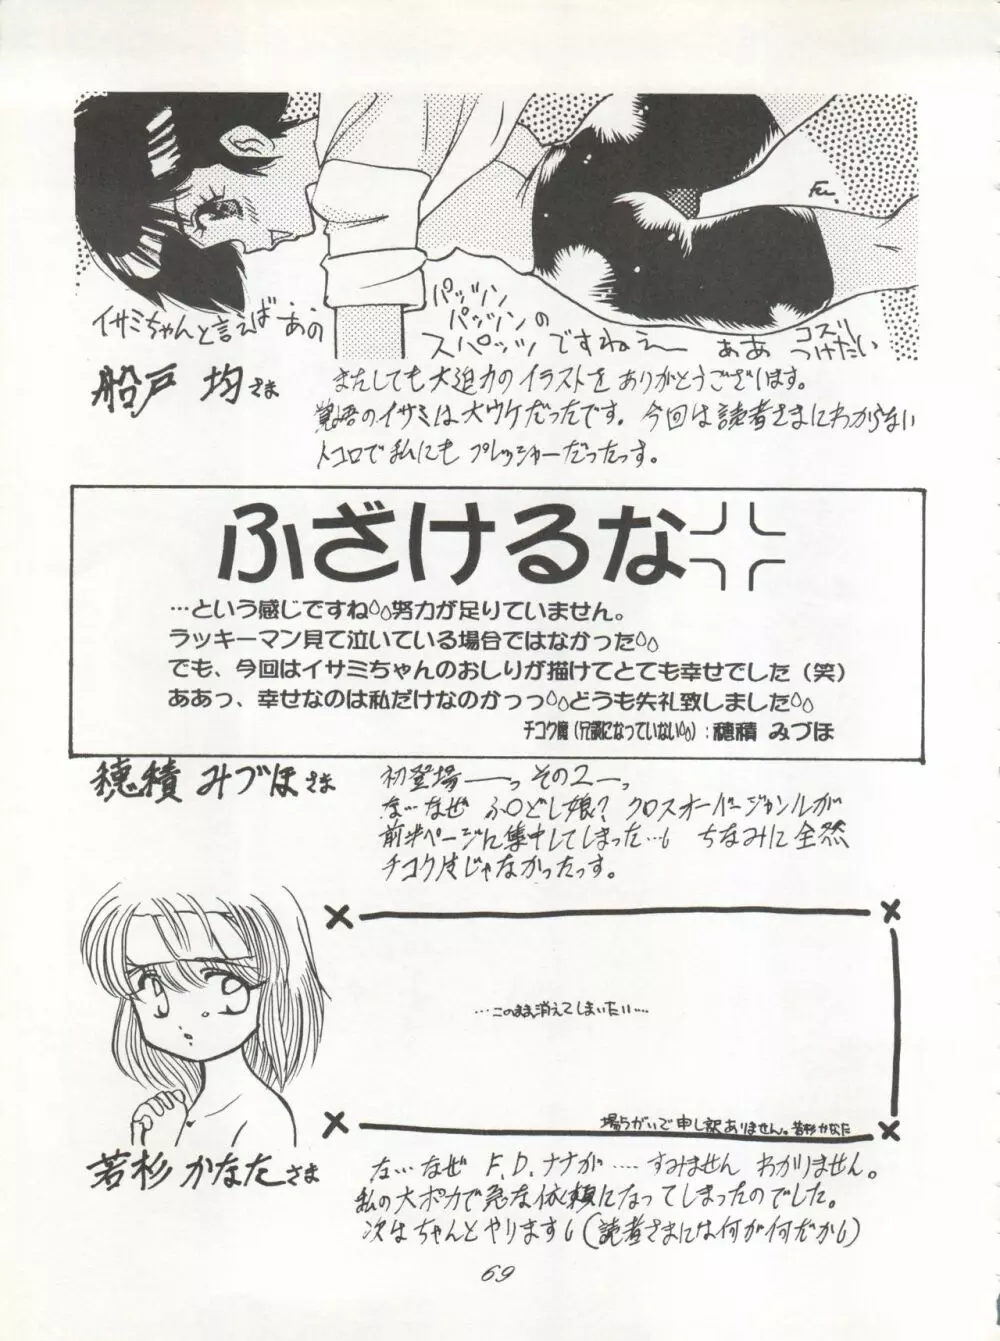 Fu.
イサミちゃんと言えばあの
パッツン
パッツンの
スパッツですねぇー
ああ コスリ
つけたい
船戸 均さま
またしても大迫力のイラストをありがとうございます。
覚悟のイサミは大ウケだったです。今回は読者さまにわからない
トコロで私にもプレッシャーだったっす。
ふざけるな
…という感じですね努力が足りていません。
ラッキーマン見て泣いている場合ではなかった
でも、今回はイサミちゃんのおしりが描けてとても幸せでした(笑)
ああっ、幸せなのは私だけなのかっっどうも失礼致しました
チコク魔(冗談になっていない):穂積 みづほ
穂積 みづほさま
初登場――っ その2―っ
な…なぜ ふ○どし娘? クロスオーバージャンルが
前半ページに集中してしまった…。ちなみに全然
チコクじゃなかったっす。
…このまま消えてしまいたい…
場ちがいで申し訳ありません。若杉かなた
若杉 かなたさま
な…なぜ F.D.ナナが…すみません わかりません。
私の大ポカで急な依頼になってしまったのでした。
次はちゃんとやります(読者さまには何が何だか)
69